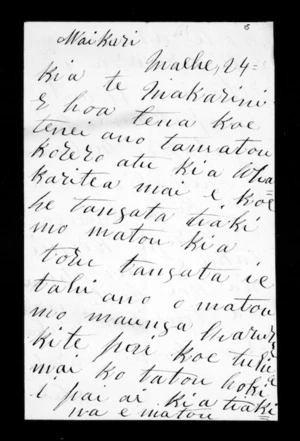 Maikuri
Maehe, 24=
Kia te Makarini
E hoa tena koe
tenei ano tamatou
korero atu kia Wha
karitea mai e koe
he tangata tiaki
mo matou kia
toru tangata ie
tahi ano o matou
mo maunga
kite pai koe tuhi
mai ko tatou hoki
e pai ai kia tiaki
na e matou